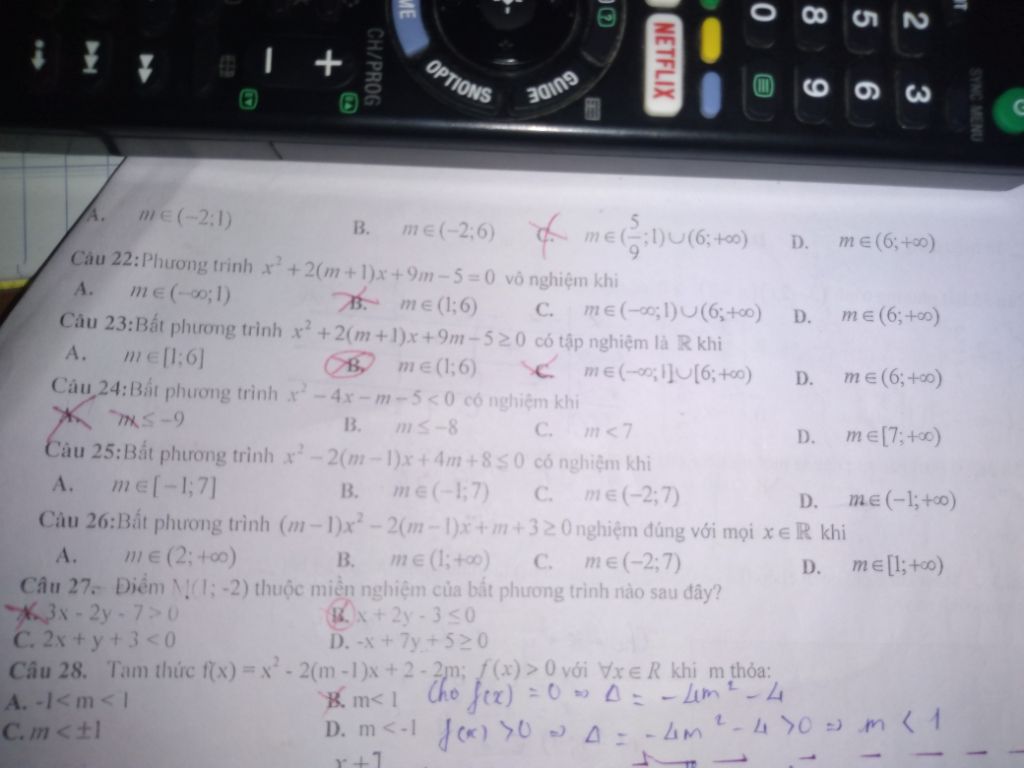 OPTIONS
GUIDE
NETFLIX
CH/PROG
SYNC MENU
0 8 5 2
9 6 3
A. m∈(−2;1) B. m∈(−2;6) C. m∈(5/9;1)∪(6;+∞) D. m∈(6;+∞)
Câu 22:Phương trình x² + 2(m+1)x + 9m − 5 = 0 vô nghiệm khi
A. m∈(−∞;1) B. m∈(1;6) C. m∈(−∞;1)∪(6;+∞) D. m∈(6;+∞)
Câu 23:Bất phương trình x² + 2(m+1)x + 9m − 5 ≥ 0 có tập nghiệm là ℝ khi
A. m∈[1;6] B. m∈(1;6) C. m∈(−∞;1]∪[6;+∞) D. m∈(6;+∞)
Câu 24:Bất phương trình x² − 4x − m − 5 < 0 có nghiệm khi
A. m ≤ −9 B. m ≤ −8 C. m < 7 D. m∈[7;+∞)
Câu 25:Bất phương trình x² − 2(m−1)x + 4m + 8 ≤ 0 có nghiệm khi
A. m∈[−1;7] B. m∈(−1;7) C. m∈(−2;7) D. m∈(−1;+∞)
Câu 26:Bất phương trình (m−1)x² − 2(m−1)x + m + 3 ≥ 0 nghiệm đúng với mọi x∈ℝ khi
A. m∈(2;+∞) B. m∈(1;+∞) C. m∈(−2;7) D. m∈[1;+∞)
Câu 27. Điểm N(1; -2) thuộc miền nghiệm của bất phương trình nào sau đây?
A. 3x - 2y - 7 > 0 B. x + 2y - 3 ≤ 0
C. 2x + y + 3 < 0 D. -x + 7y + 5 ≥ 0
Câu 28. Tam thức f(x) = x² - 2(m -1)x + 2 - 2m; f(x) > 0 với ∀x∈R khi m thỏa:
A. -1 < m < 1 B. m< 1 Cho f(x) = 0 ⇒ Δ = −4m² − 4
C. m < ±1 D. m < -1 f(x) > 0 ⇒ Δ = −4m² − 4 > 0 ⇒ m < 1